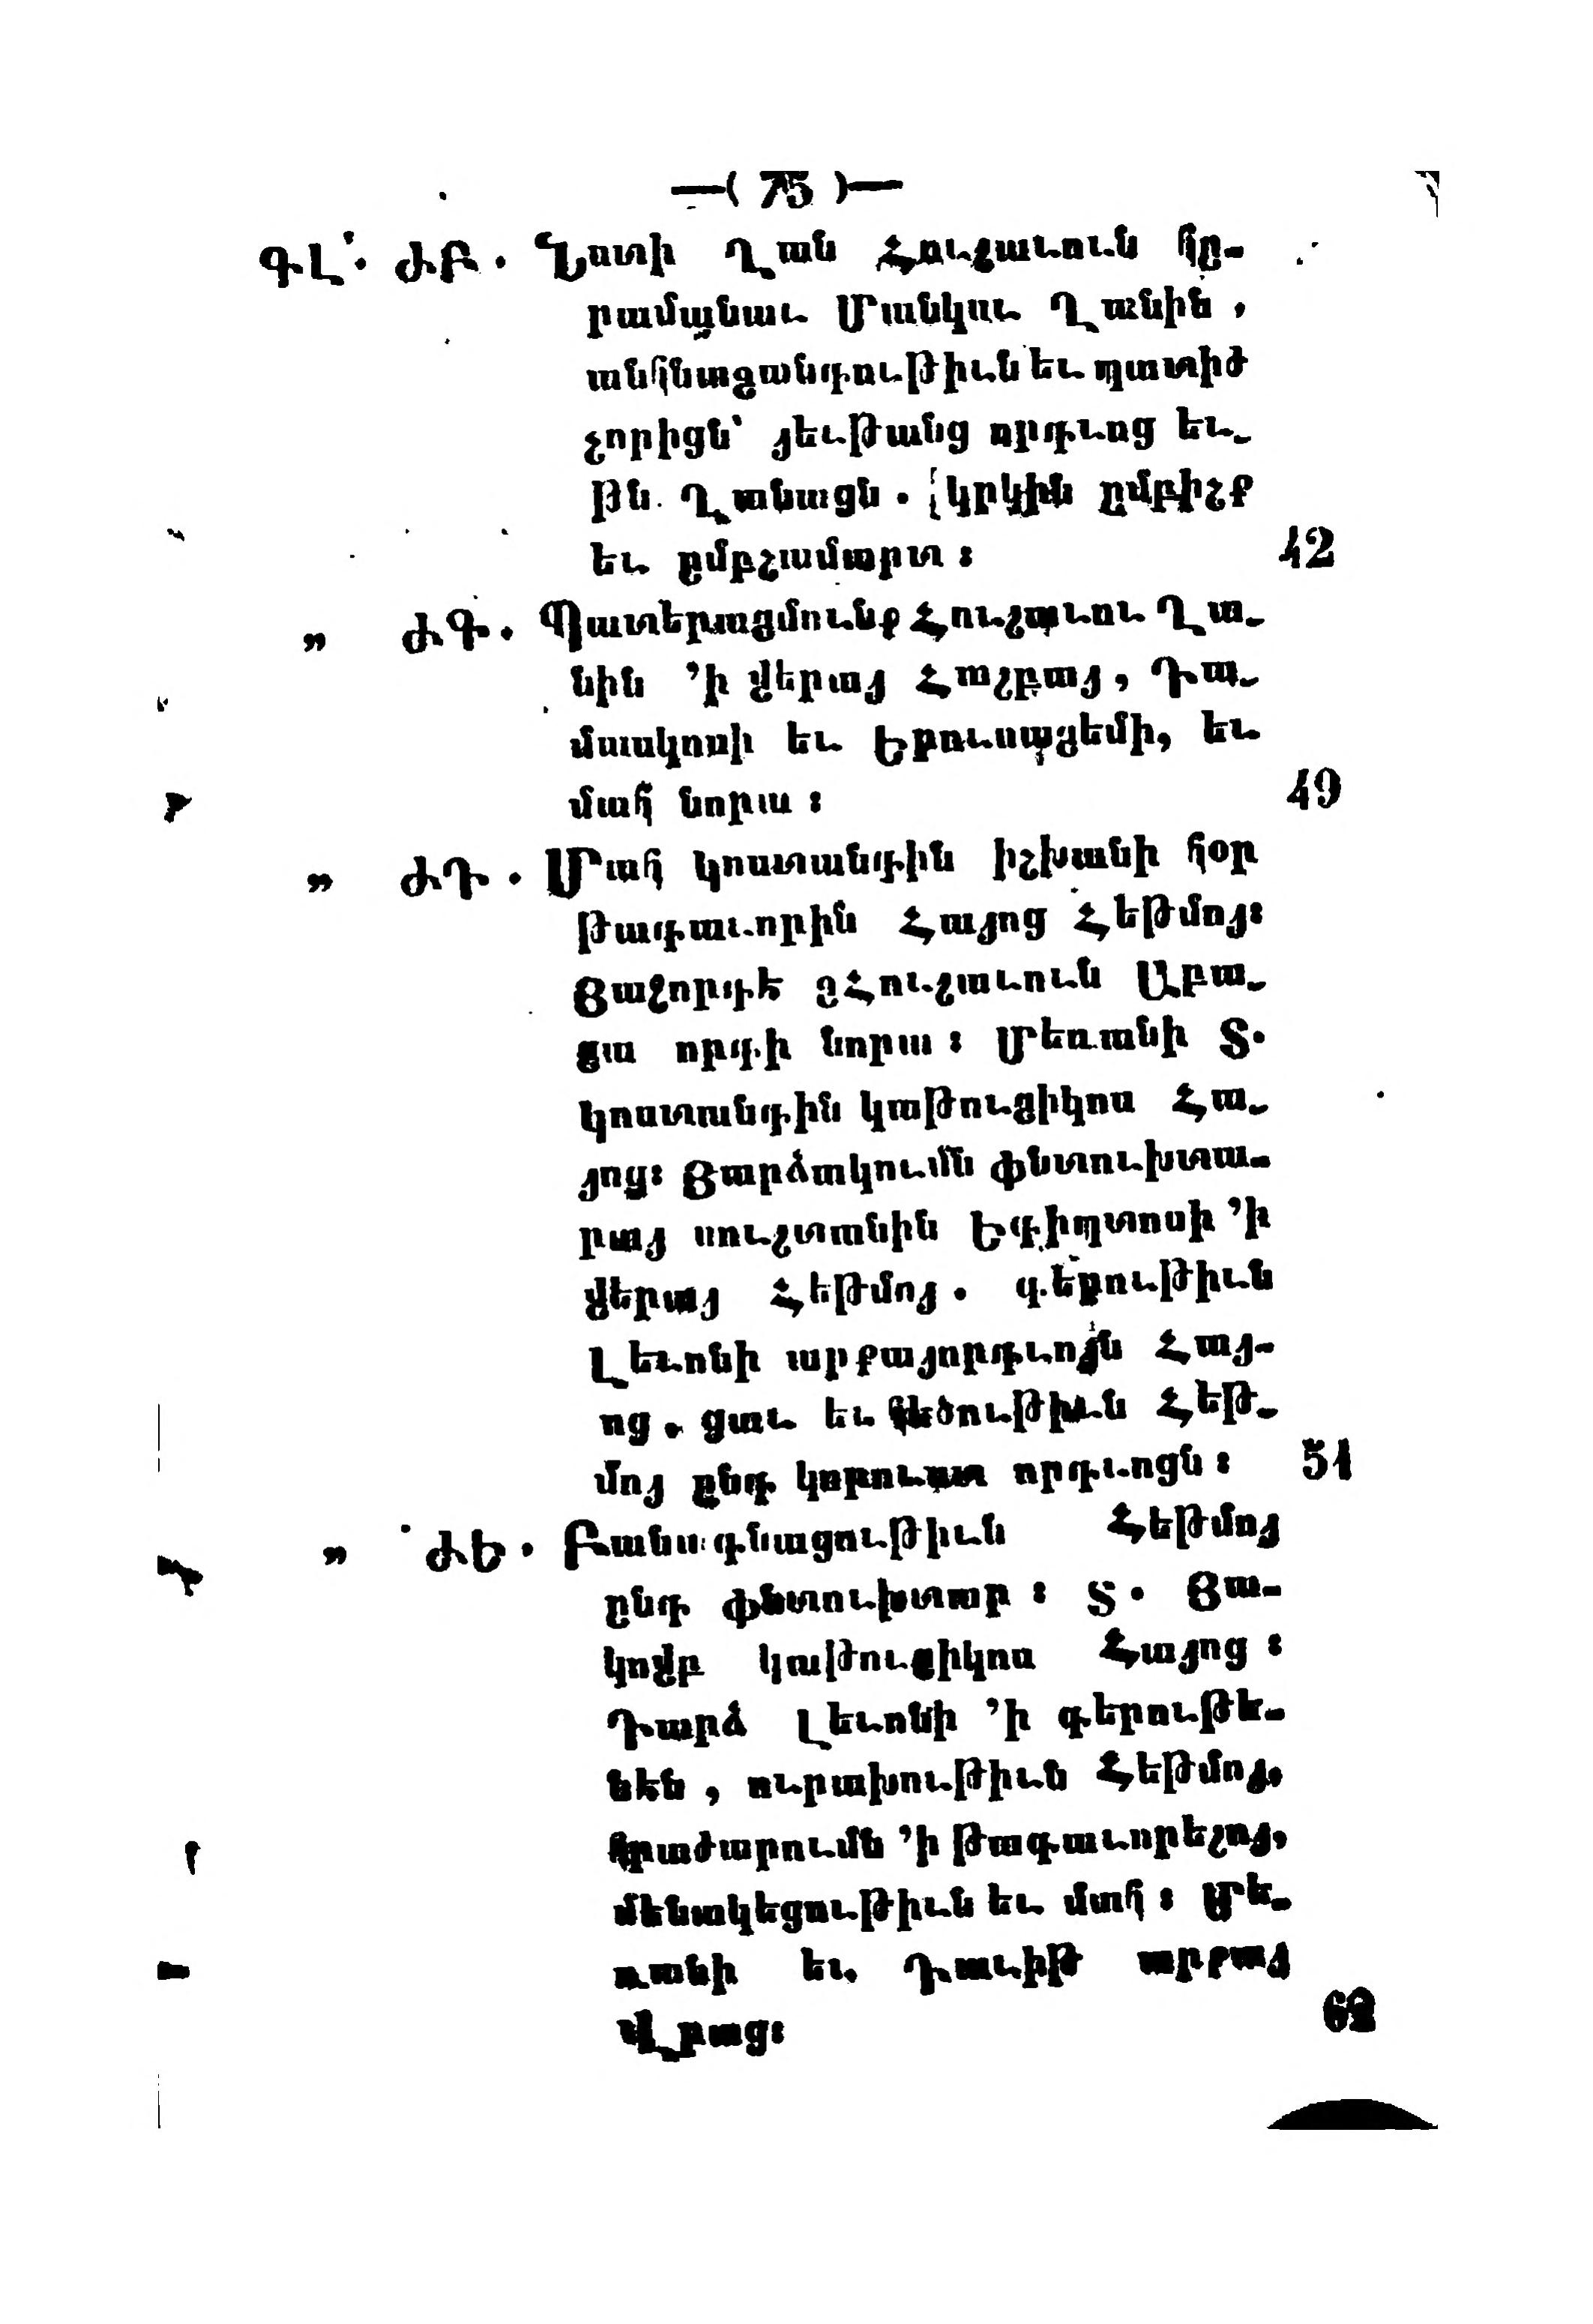 —( 75 )—
ԳԼ՟. ԺԲ. Նստի Ղան Հուլաւուն հը-
րամանաւ Մանկու Ղանին,
անհնազանդութիւն եւ պատիժ
չորիցն՝ յեւթանց որդւոց եւ-
թն Ղանացն. կրկին ըմբիշք
եւ ըմբշամարտ։ 42
„ ԺԳ. Պատերազմունք Հուլաւու Ղա-
նին ՚ի վերայ Հալբայ, Դա-
մասկոսի եւ Երուսաղեմի, եւ
մահ նորա։ 49
„ ԺԴ. Մահ կոստանդին իշխանի հօր
թագաւորին Հայոց Հեթմոյ։
Յաջորդէ զՀուլաւուն Աբա-
ղա որդի նորա։ Մեռանի Տ.
կոստանդին կաթուղիկոս Հա-
յոց։ Յարձակումն փնտուխտա-
րայ սուլտանին Եգիպտոսի ՚ի
վերայ Հեթմոյ. գերութիւն
Լեւոնի արքայորդւոյն Հայ-
ոց. ցաւ եւ հեծութիւն Հեթ-
մոյ ընդ կորուստ որդւոցն։ 51
„ ԺԵ. Բանագնացութիւն Հեթմոյ
ընդ փնտուխտար։ Տ. Յա-
կովբ կաթուղիկոս Հայոց։
Դարձ Լեւոնի ՚ի գերութե-
նէն, ուրախութիւն Հեթմոյ,
հրաժարումն ՚ի թագաւորելոյ,
մենակեցութիւն եւ մահ։ Մե-
ռանի եւ Դաւիթ արքայ
Վրաց։ 62